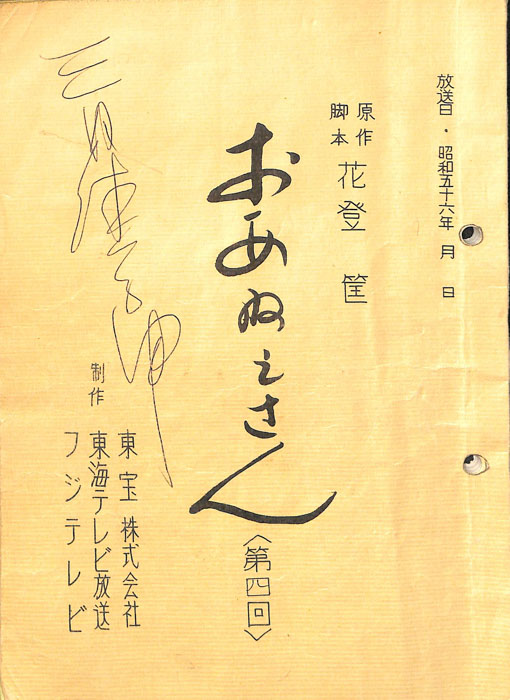 放送日・昭和五十六年　月　日
原作
脚本
花登　筐
おあねえさん
〈第四回〉
制作
東宝株式会社
東海テレビ放送
フジテレビ